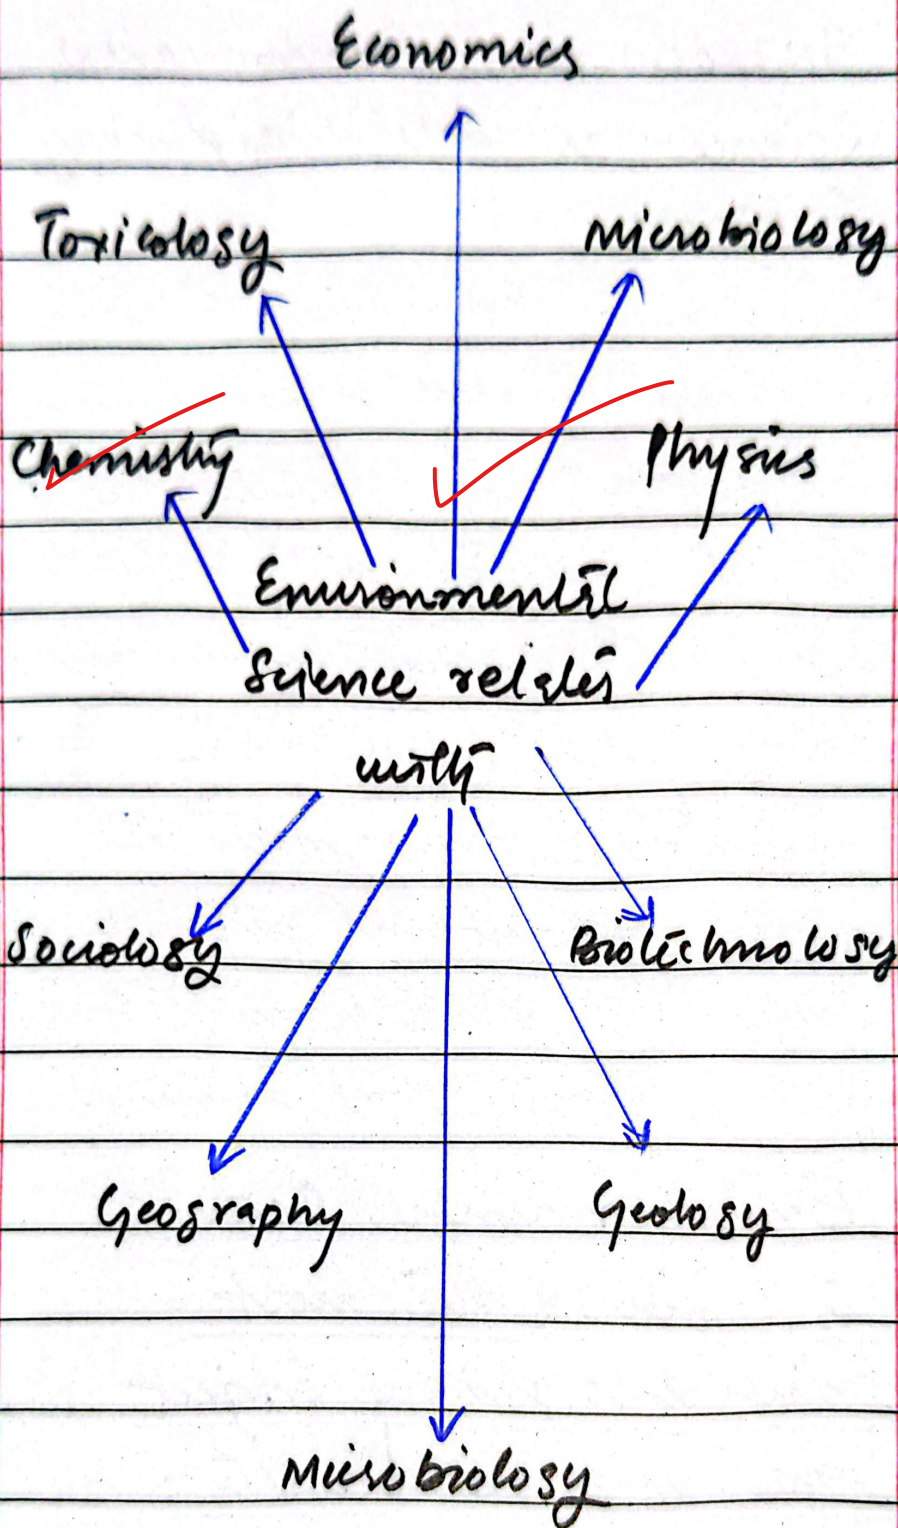 Economics
Toxicology Microbiology
Chemistry Physics
Environmental
Science relates
with
Sociology Biotechnology
Geography Geology
Microbiology